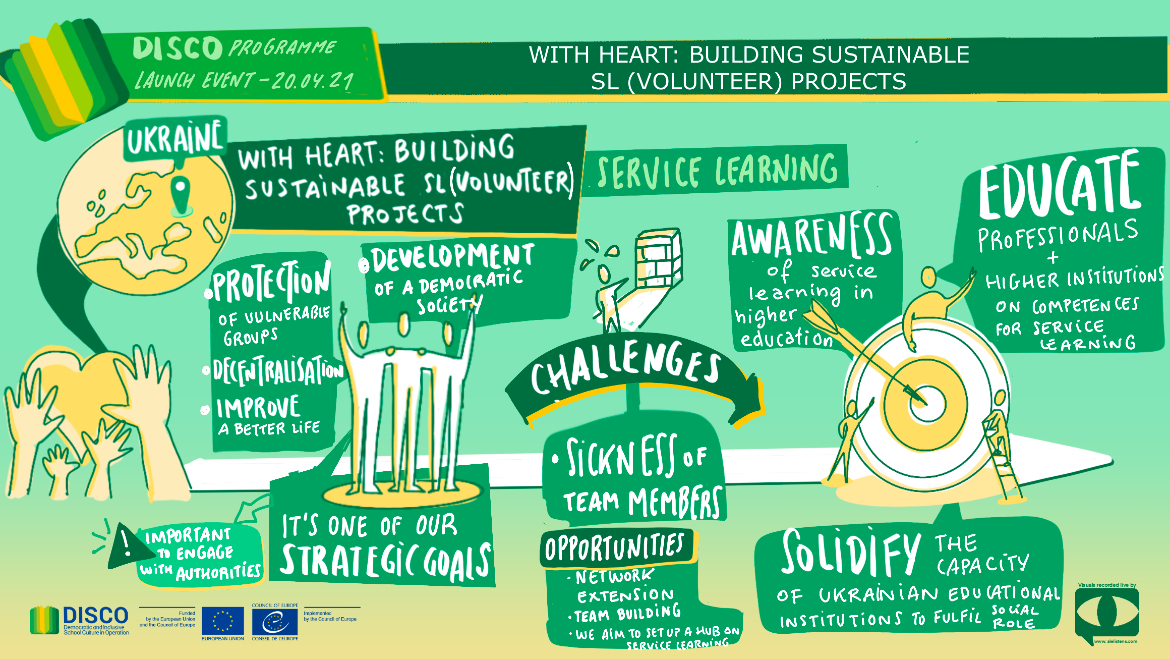 DISCO PROGRAMME
LAUNCH EVENT - 20.04.21
WITH HEART: BUILDING SUSTAINABLE
SL (VOLUNTEER) PROJECTS
UKRAINE
WITH HEART: BUILDING
SUSTAINABLE SL (VOLUNTEER)
PROJECTS
SERVICE LEARNING
• PROTECTION
OF VULNERABLE
GROUPS
• DECENTRALISATION
• IMPROVE
A BETTER LIFE
• DEVELOPMENT
OF A DEMOCRATIC
SOCIETY
IT'S ONE OF OUR
STRATEGIC GOALS
!
IMPORTANT
TO ENGAGE
WITH AUTHORITIES
CHALLENGES
• SICKNESS OF
TEAM MEMBERS
OPPORTUNITIES
• NETWORK
EXTENSION
• TEAM BUILDING
• WE AIM TO SET UP A HUB ON
SERVICE LEARNING
AWARENESS
of service
learning in
higher
education
EDUCATE
PROFESSIONALS
+
HIGHER INSTITUTIONS
ON COMPETENCES
FOR SERVICE
LEARNING
SOLIDIFY THE
CAPACITY
OF UKRAINIAN EDUCATIONAL
INSTITUTIONS TO FULFIL SOCIAL
ROLE
DISCO
Democratic and Inclusive
School Culture in Operation
Funded
by the European Union
and the Council of Europe
EUROPEAN UNION
COUNCIL OF EUROPE
CONSEIL DE L'EUROPE
Implemented
by the Council of Europe
Visuals recorded live by